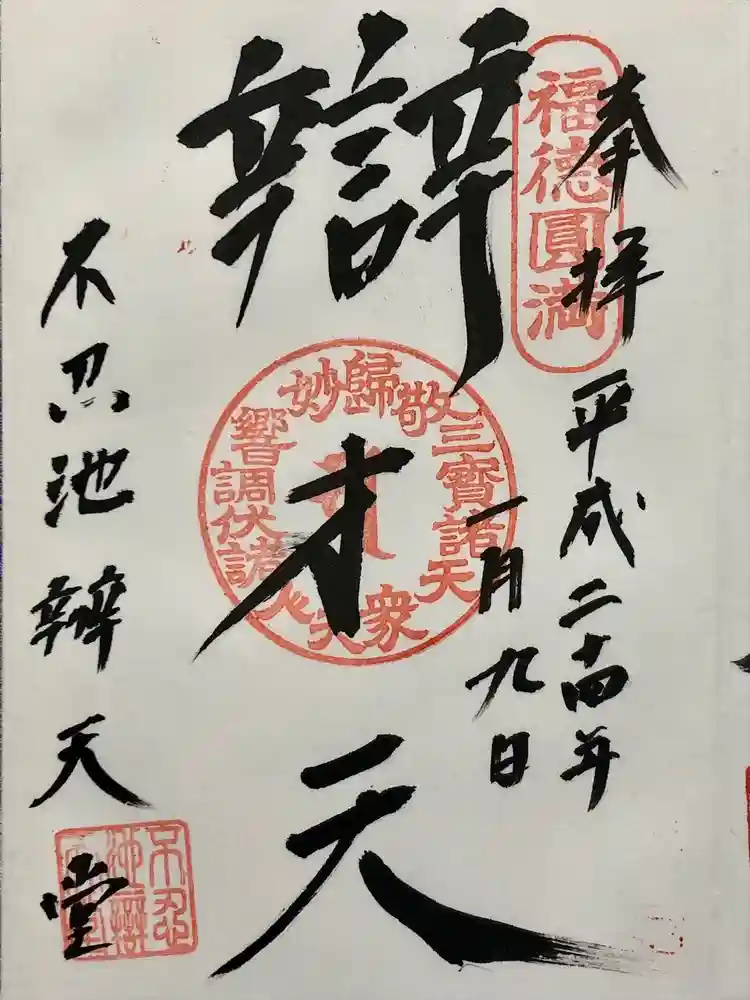 奉拝
福德圓満
平成二十四年
一月九日
辯才天
歸敬三寶諸天衆
妙響調伏諸人天
不忍池辯天堂
不忍
池辯